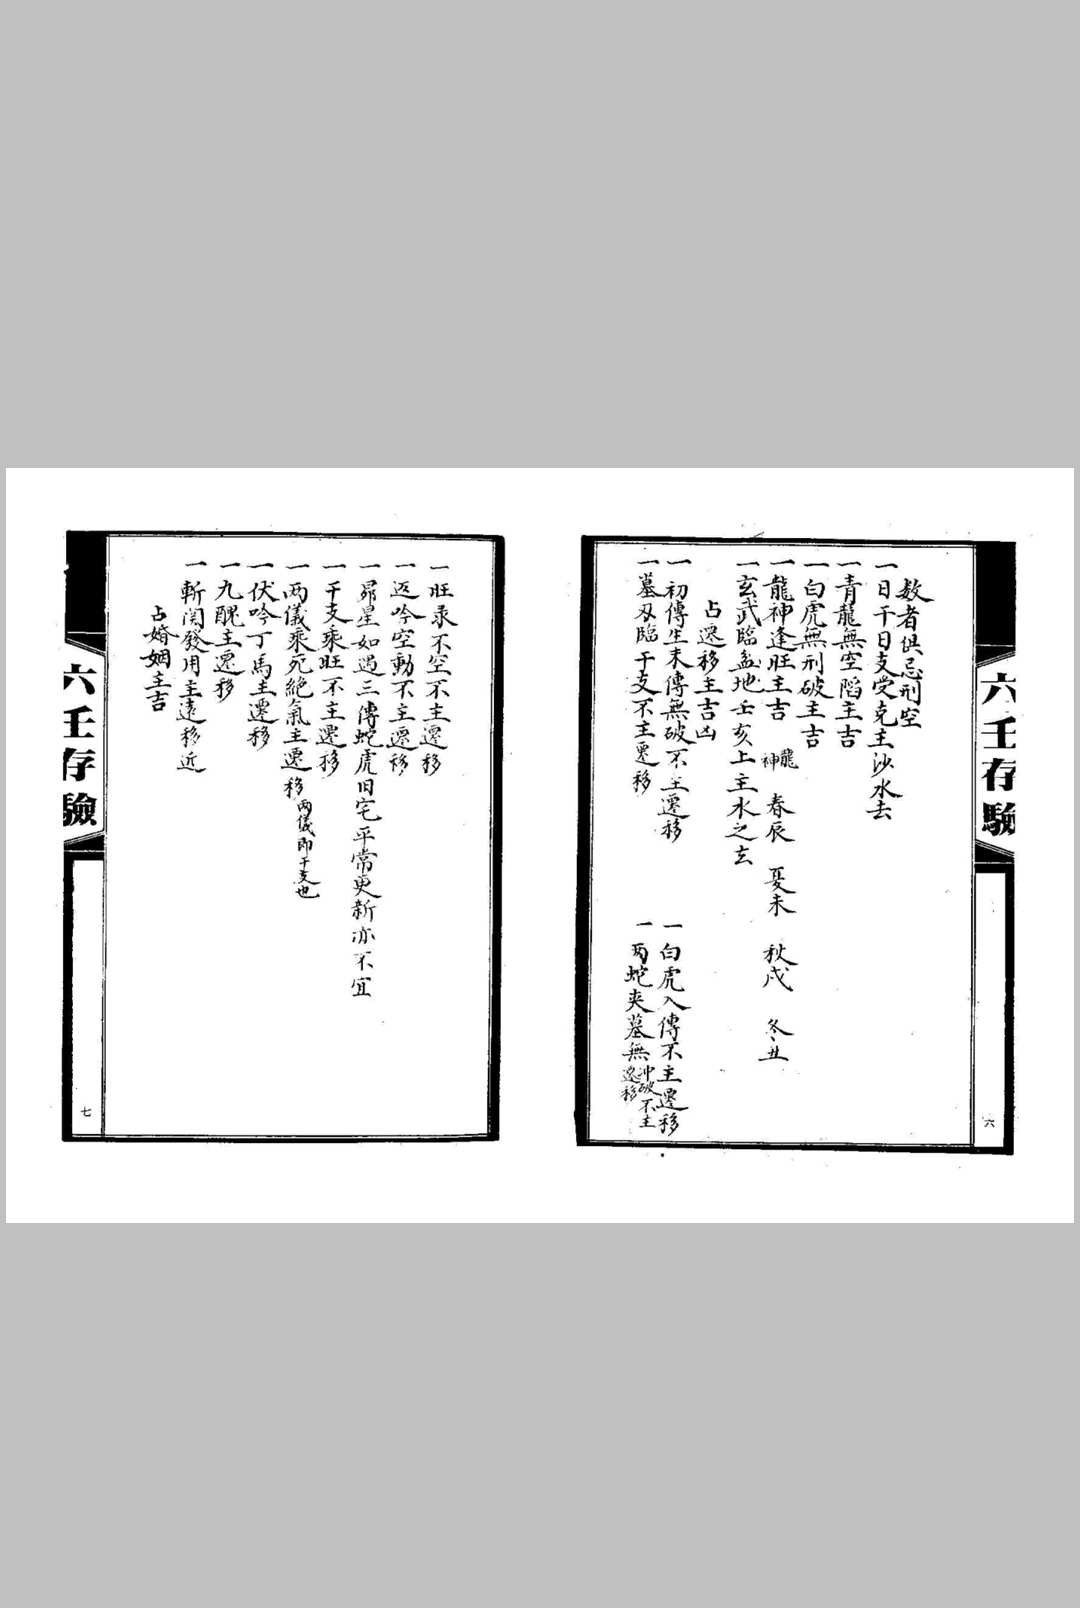 六壬存驗
六
数者俱忌刑空
一日干日支受克主沙水去
一青龍無空陷主吉
一白虎無刑破主吉
一龍神逢旺主吉 龍神 春辰 夏未 秋戌 冬丑
一玄武臨盆地壬亥上主水之玄
占遷移主吉凶
一初傳生末傳無破不主遷移
一白虎入傳不主遷移
一墓刃臨干支不主遷移
一两蛇夾墓無冲破不主遷移
一旺录不空不主遷移
一返吟空動不主遷移
一昴星如遇三傳蛇虎旧宅平常更新亦不宜
一干支乘旺不主遷移
一两儀乘死絕氣主遷移 两儀即干支也
一伏吟丁馬主遷移
一九醜主遷移
一斬関發用主遠移近
占婚姻主吉
六壬存驗
七